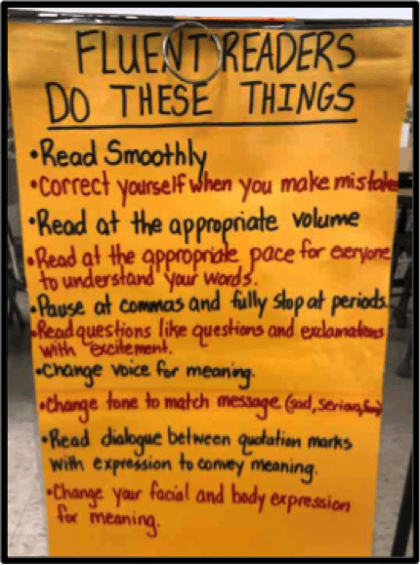 FLUENT READERS
DO THESE THINGS
•Read Smoothly
•Correct yourself when you make mistake
•Read at the appropriate volume
•Read at the appropriate pace for everyone
to understand your words.
•Pause at commas and fully stop at periods.
•Read questions like questions and exclamations
with excitement.
•Change voice for meaning.
•Change tone to match message (sad, serious,
•Read dialogue between quotation marks
with expression to convey meaning.
•Change your facial and body expression
for meaning.